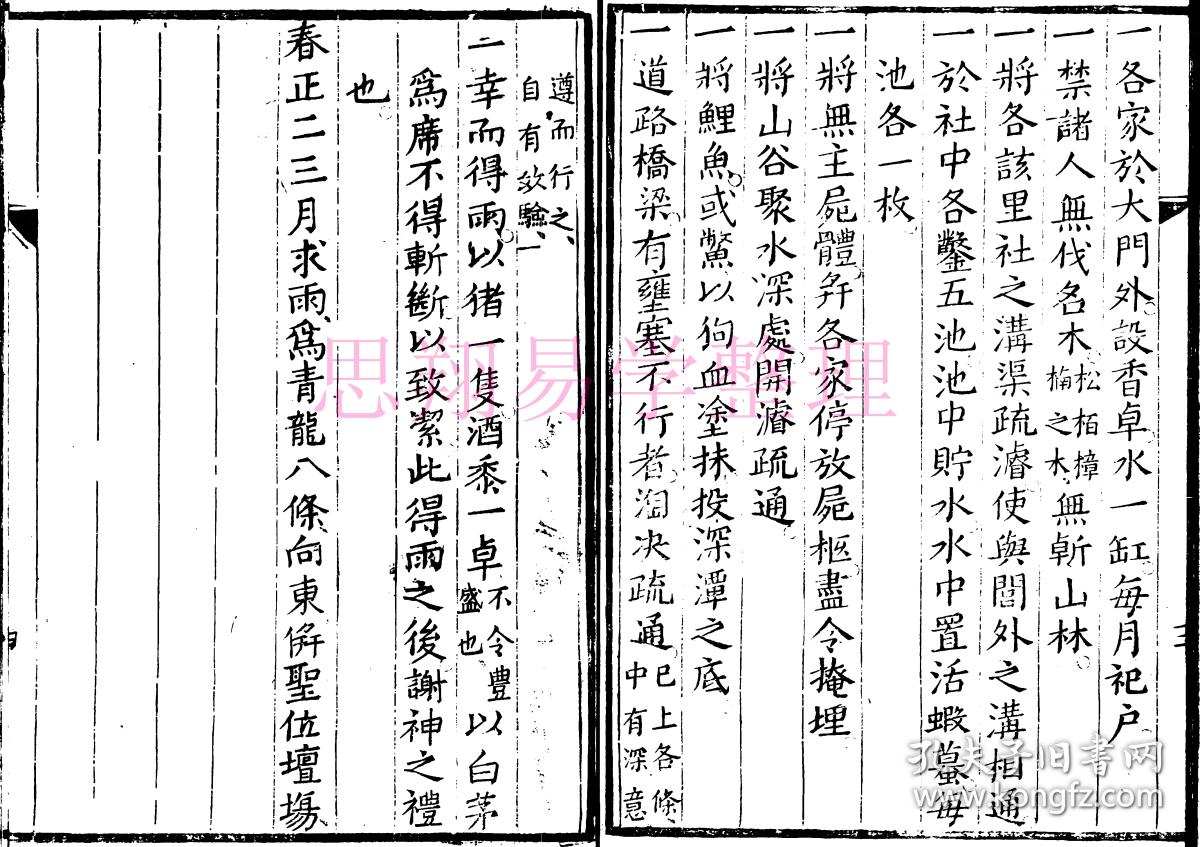 一各家於大門外設香卓水一缸每月祀户
一禁諸人無伐名木松栢樟楠之木無斬山林
一將各該里社之溝渠疏濬使與閭外之溝相通
一於社中各鑿五池池中貯水水中置活蝦蟇每
池各一枚
一將無主屍體并各家停放屍柩盡令掩埋
一將山谷聚水深處開濬疏通
一將鯉魚或鱉以狗血塗抹投深潭之底
一道路橋梁有壅塞不行者淘決疏通已上各條中有深意
遵而行之自有效驗
一幸而得雨以猪一隻酒黍一卓不令豐盛也以白茅
爲席不得斬斷以致潔此得雨之後謝神之禮
也
春正二三月求雨爲青龍八條向東僻聖位壇場
思翔易学整理
孔夫子旧书网
www.kongfz.com